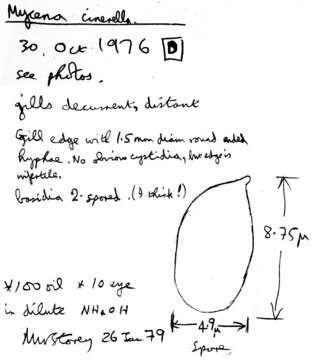 Mycena cinerella.
30. Oct 1976 D
see photos.
gills decurrent, distant
Gill edge with 1.5 mm diam round ended
hyphae. No obvious cystidia, but edge is
infertile.
basidia 2-spored. (I think!)
8.75µ
x100 oil x 10 eye
in dilute NH4OH
4.9µ
MWStorey 26 Jan 79
Spore